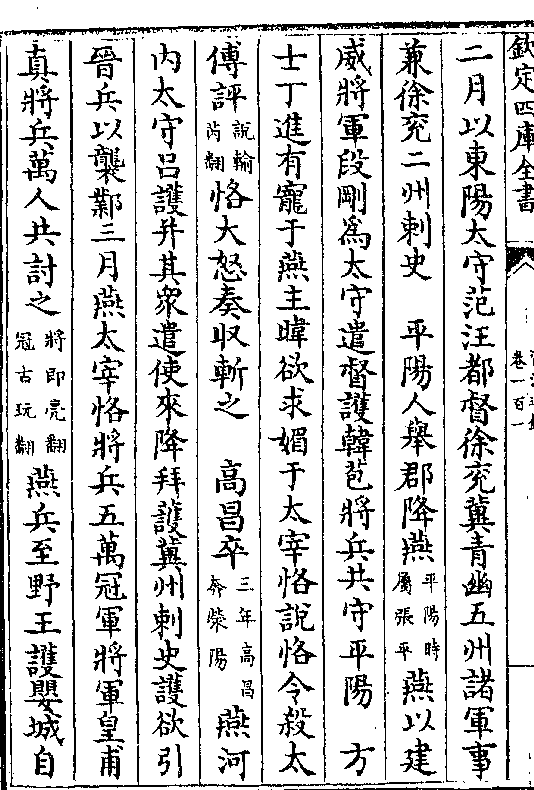 欽定四庫全書
卷一百一
二月以東陽太守范汪都督徐兗冀青幽五州諸軍事
兼徐兗二州刺史　平陽人舉郡降燕平陽時屬張平燕以建
威將軍段剛為太守遣督護韓苞將兵共守平陽　方
士丁進有寵于燕主暐欲求媚于太宰恪說恪令殺太
傅評說輸芮翻恪大怒奏収斬之　高昌卒三年高昌奔滎陽燕河
内太守吕護并其衆遣使來降拜護冀州刺史護欲引
晉兵以襲鄴三月燕太宰恪將兵五萬冠軍將軍皇甫
真將兵萬人共討之將即亮翻冠古玩翻燕兵至野王護嬰城自